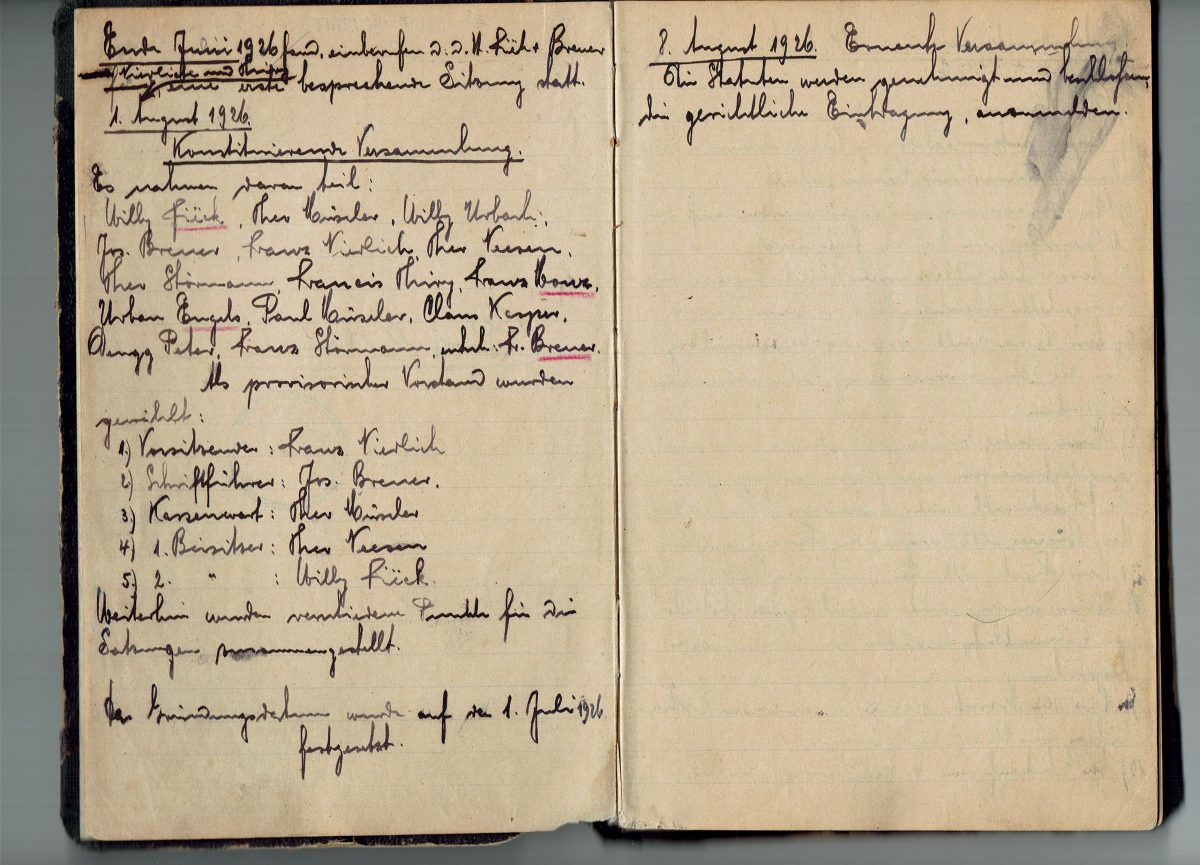 Ende Juni 1926 fand, einberufen d. d. H. Rück + Breuer
Nierlich und Thiry
eine erste besprechende Sitzung statt.
1. August 1926.
Konstituierende Versammlung.
Es nahmen daran teil:
Willy Rück, Theo Müseler, Willy Urbach,
Jos. Breuer, Franz Nierlich, Theo Niesen,
Theo Störmann, Francis Thiry, Franz
Urban Engels, Paul Müseler, Claus Kasper,
Peter, Franz Störmann, Fr. Breuer.
Als provisorischer Vorstand wurden
gewählt:
1.) Vorsitzender: Franz Nierlich
2) Schriftführer: Jos. Breuer.
3) Kassenwart: Theo Müseler
4) 1. Beisitzer: Theo Niesen
5.) 2. " : Willy Rück.
Weiterhin wurden verschiedene Punkte für die
Satzungen zusammengestellt.
Das Gründungsdatum wurde auf den 1. Juli 1926
festgesetzt.
8. August 1926. Erneute Versammlung
Die Statuten werden genehmigt und beschlossen,
die gerichtliche Eintragung, anzumelden.